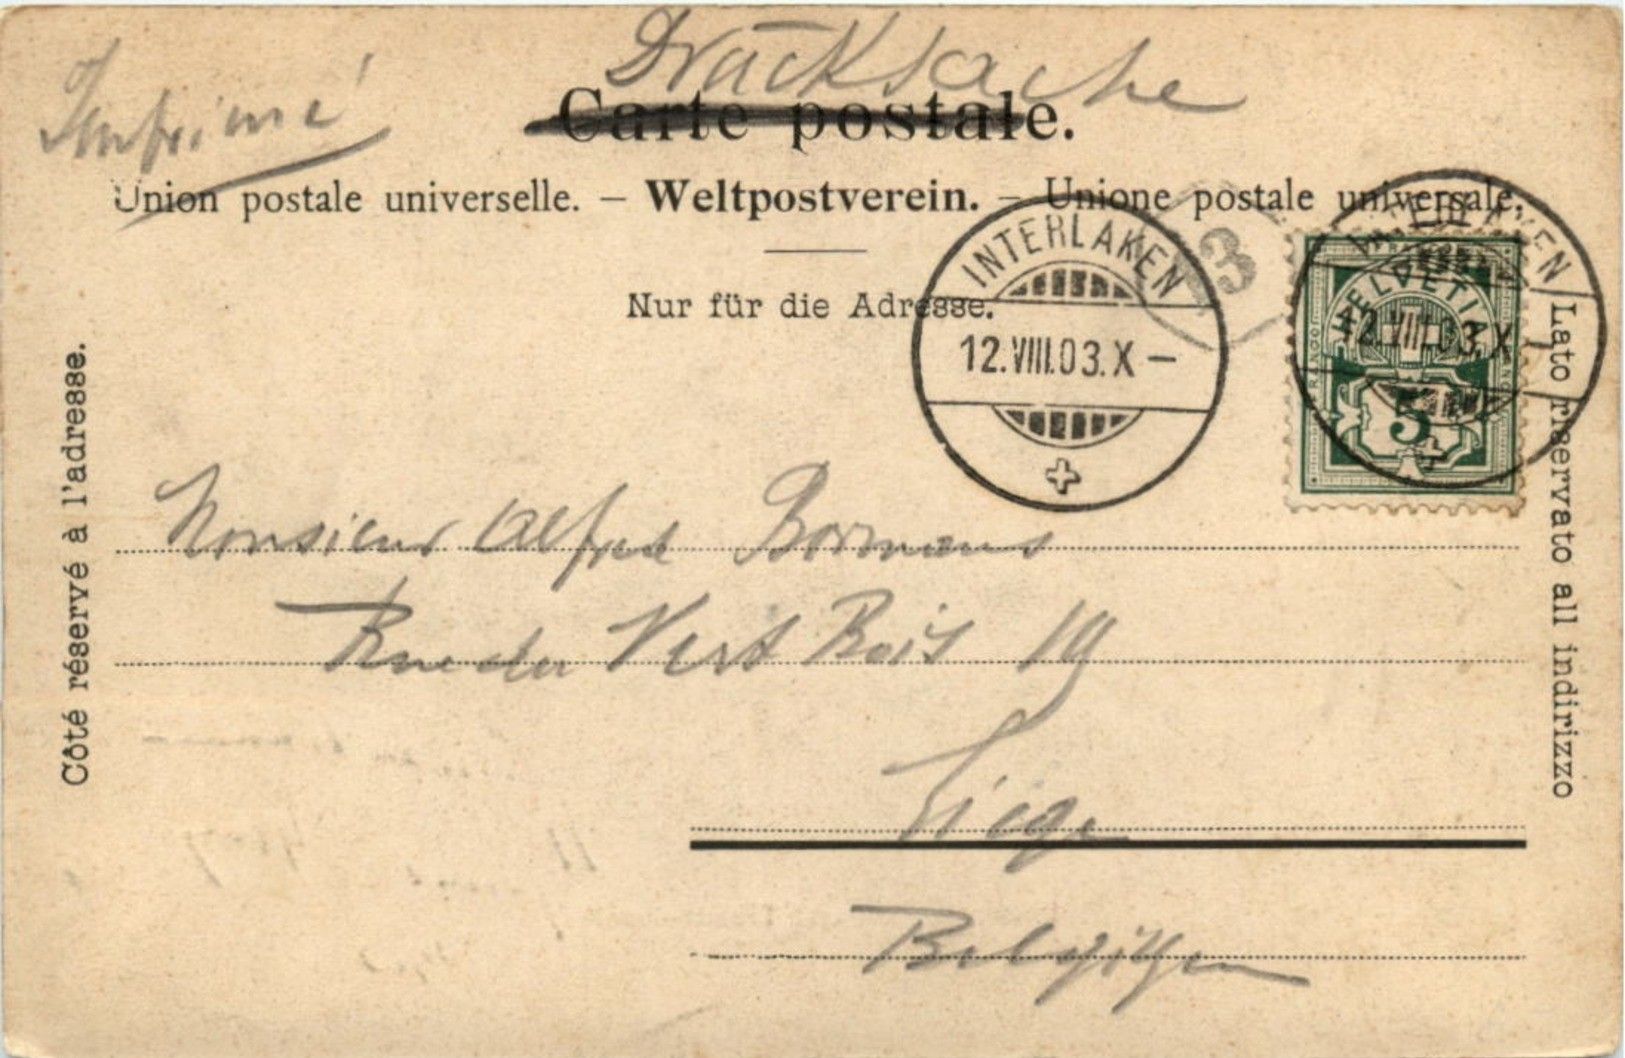 Drucksache
Imprimé
Carte postale.
Union postale universelle. – Weltpostverein. – Unione postale universale.
Nur für die Adresse.
INTERLAKEN
12.VIII.03.X–
INTERLAKEN
12.VIII.03.X–
HELVETIA
5
3
Côté réservé à l'adresse.
Lato riservato all indirizzo
Monsieur Alfred Bormans
Rue du Vert Bois 19
Liége
Belgien